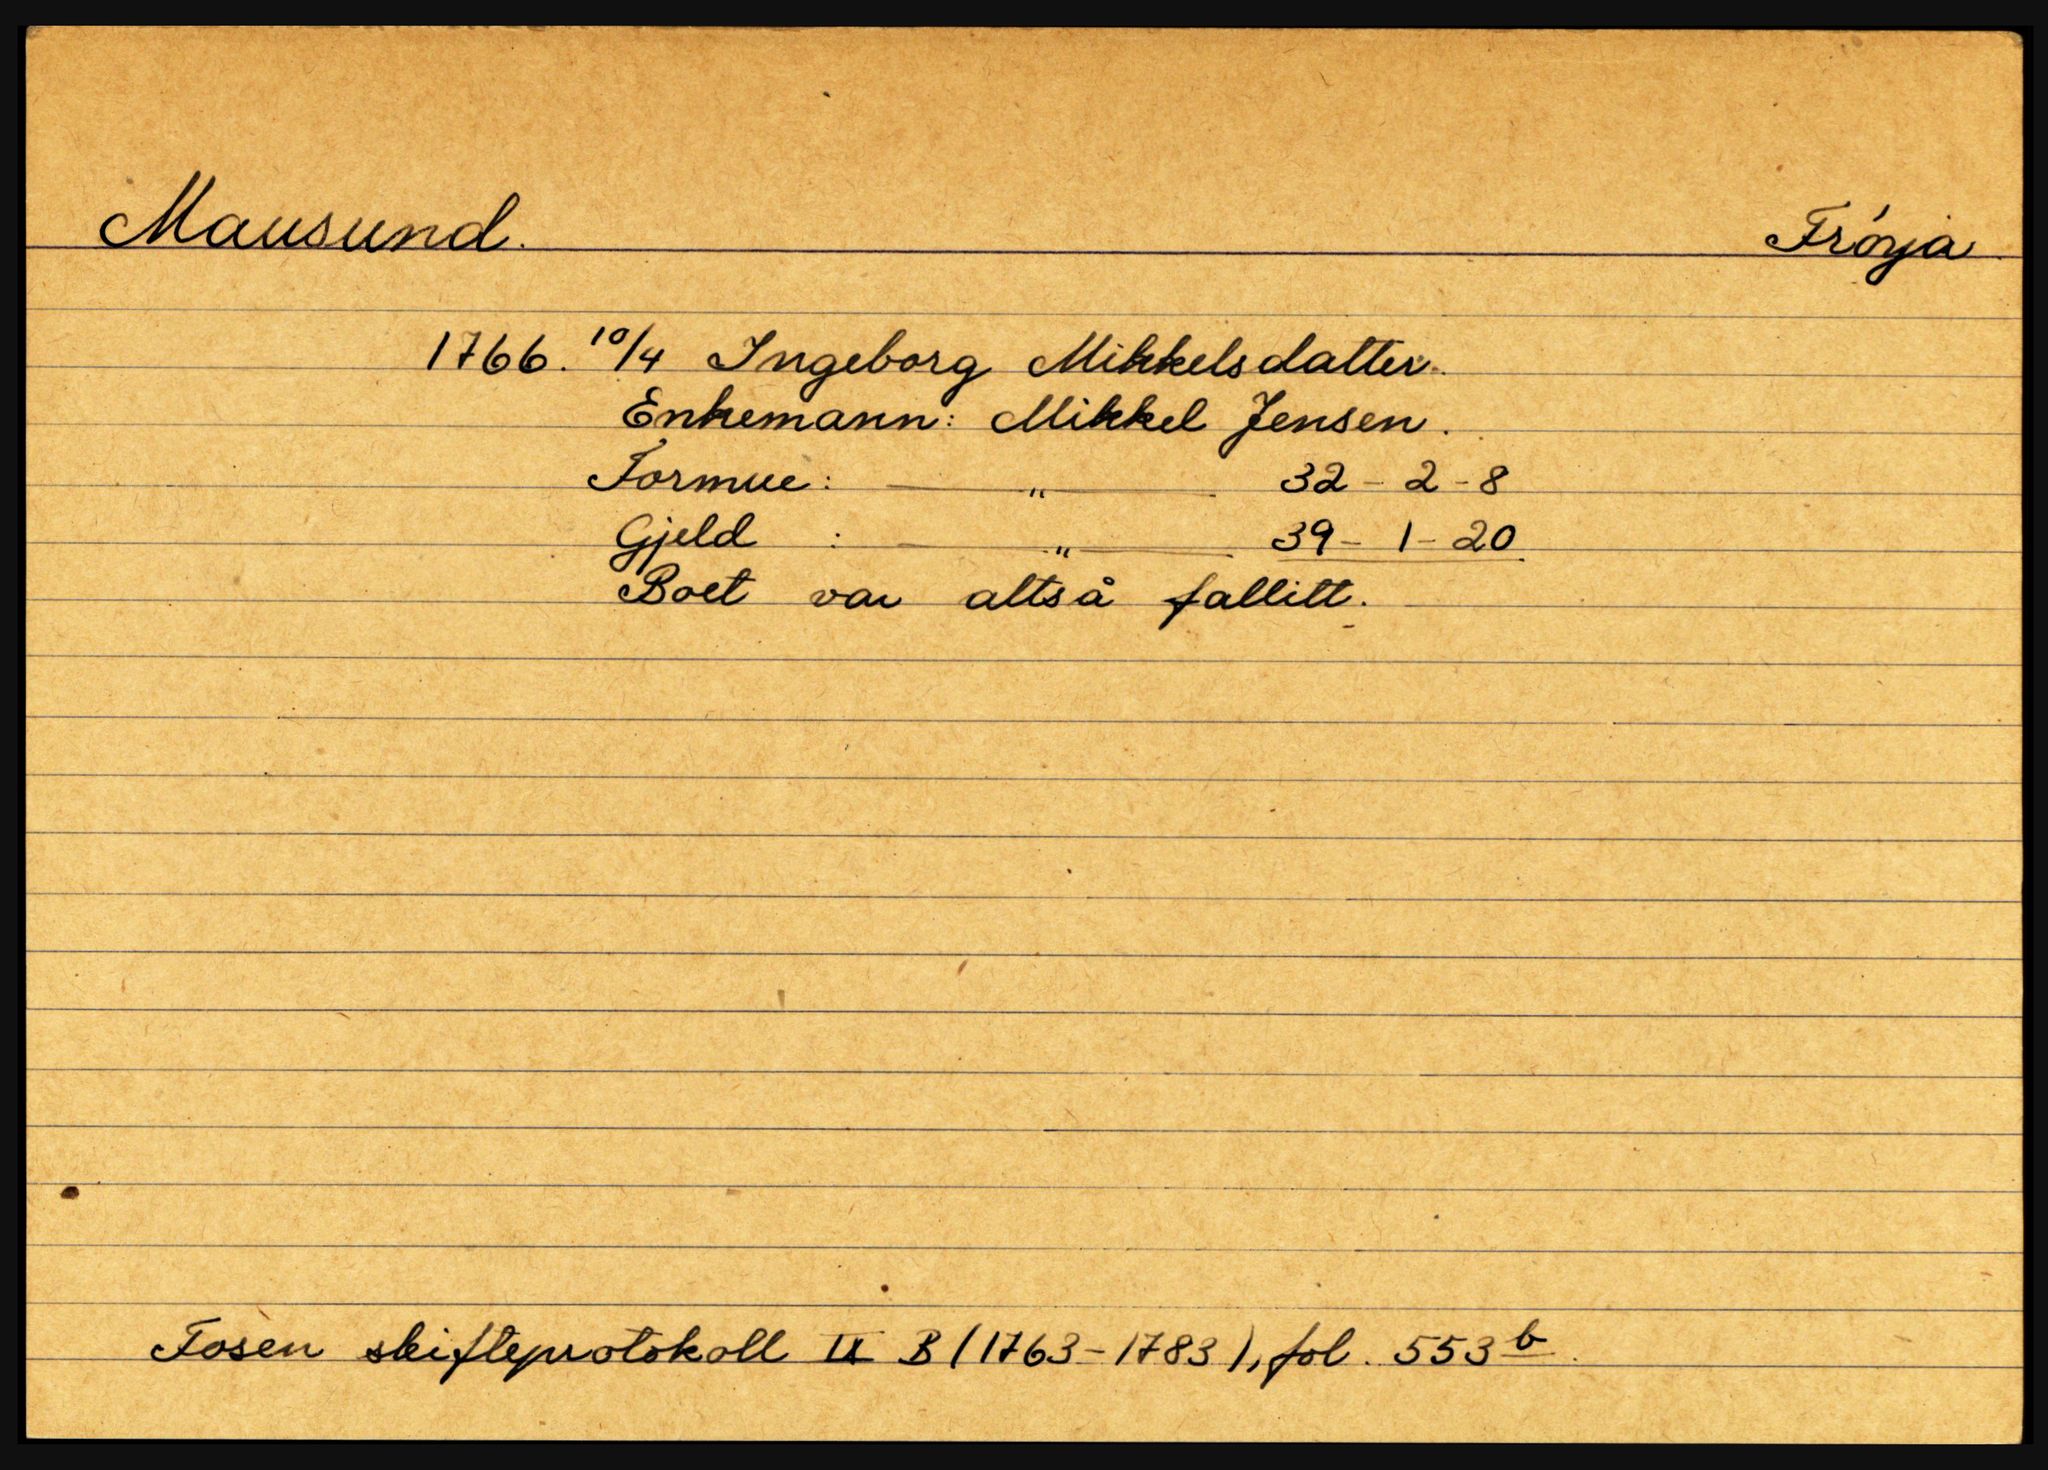 Mausund. Frøya
1766. 10/4 Ingeborg Mikkelsdatter.
Enkemann: Mikkel Jensen.
Formue: — " — 32 - 2 - 8
Gjeld : — " — 39 - 1 - 20.
Boet var altså fallitt.
Fosen skifteprotokoll IX B (1763-1783), fol. 553 b.